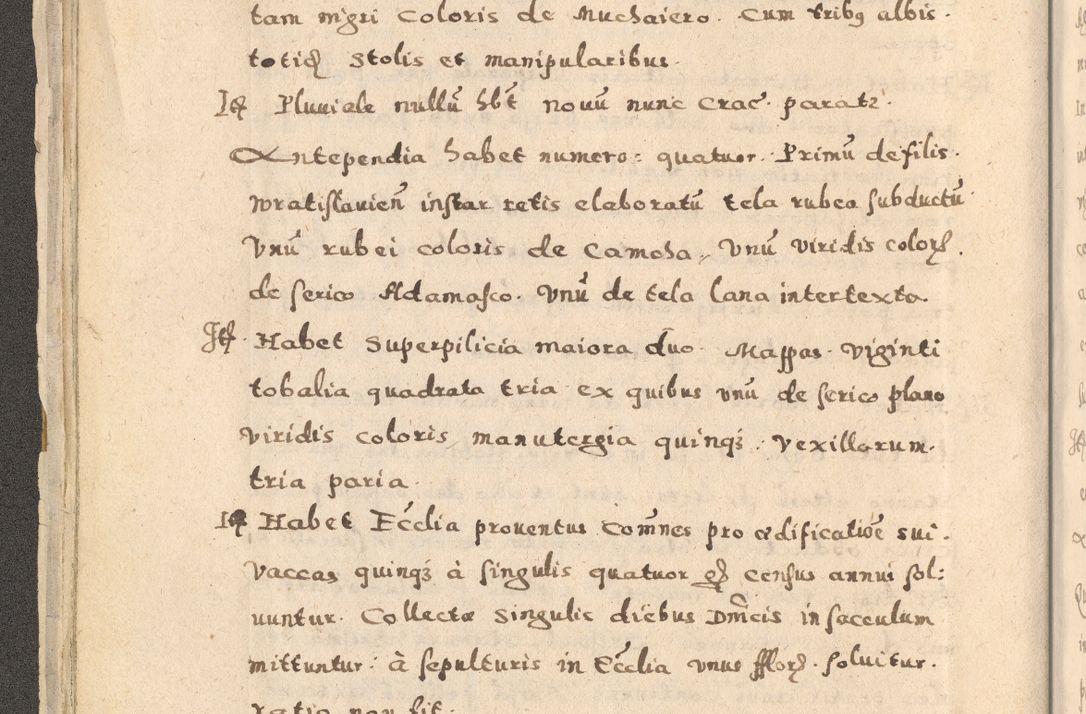 tam nigri coloris de Muchaiero. Cum tribꝯ albis.
totidꝫ stolis et manipularibus.
Itꝫ Pluuiale nullū hēt nouū nunc Crac. parat
Antependia habet numero: quatuor. Primū de filis.
Wratislauieñ instar retis elaboratū tela rubea subductū
Vnū rubei coloris de Camcha, Vnū viridis colorꝫ.
de serico Adamasco. Vnū de tela lana intertexta.
Itꝫ. Habet superpilicia maiora duo. Mappas. viginti
tobalia quadrata tria ex quibus vnū de serico plano
viridis coloris, manutergia quinqꝫ. Vexillorum.
tria paria.
Itꝫ Habet Eccłia prouentus Com̄nes pro ædificatiōe sui.
Vaccas quinqꝫ à singulis quatuor census annui sol:
uuntur. Collectæ singulis diebus Dn̄icis in sacculum
mittuntur: à sepulturis in Eccłia vnus fflorꝫ. soluitur.
ratio non fit.